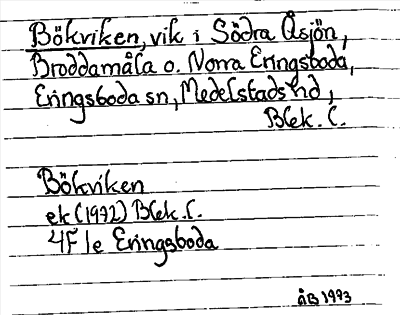 Bökviken, vik i Södra Åsjön,
Broddamåla o. Norra Eringsboda,
Eringsboda sn, Medelstads hd,
Blek. l.
Bökviken
ek (1972) Blek. l.
4F 1e Eringsboda
åB 1993